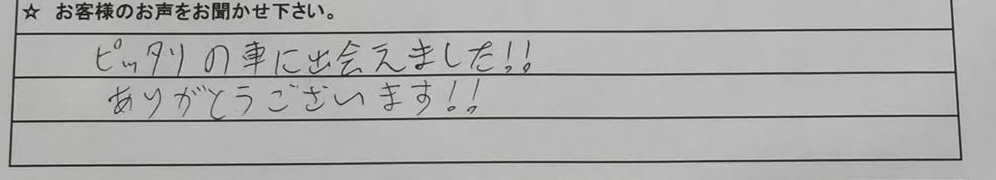 ☆ お客様のお声をお聞かせ下さい。
ピッタリの車に出会えました!!
ありがとうございます!!